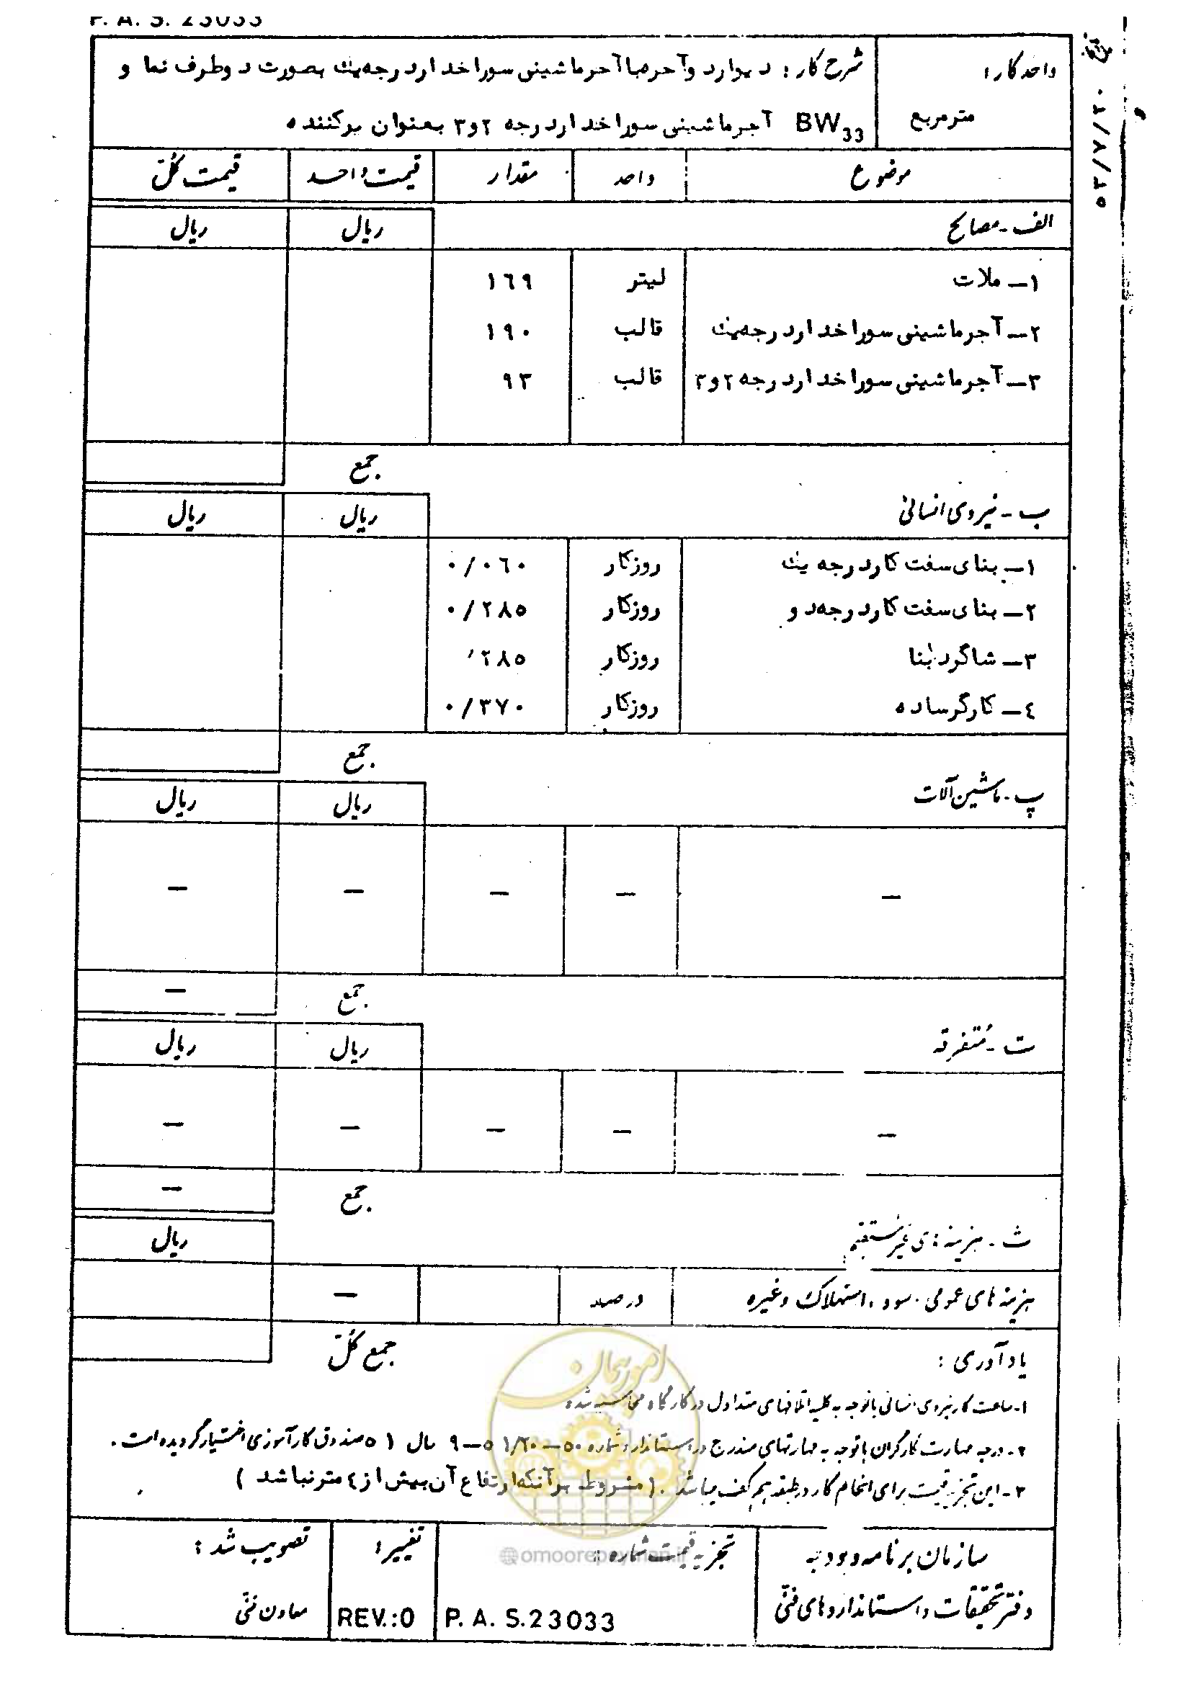 P. A. S. 23033
واحد کار: شرح کار: دیوار دو آجره با آجر ماشینی سوراخدار درجه یک بصورت دو طرف نما و
مترمربع آجر ماشینی سوراخدار درجه ۲و۳ بعنوان پرکننده BW33
۵۳/۷/۲۰
موضوع واحد مقدار قیمت واحد قیمت کل
الف - مصالح ریال ریال
۱- ملات لیتر ۱۶۹
۲- آجر ماشینی سوراخدار درجه یک قالب ۱۹۰
۳- آجر ماشینی سوراخدار درجه ۲و۳ قالب ۹۳
جمع
ب - نیروی انسانی ریال ریال
۱- بنای سفت کار درجه یک روزکار ۰/۰۶۰
۲- بنای سفت کار درجه دو روزکار ۰/۲۸۵
۳- شاگرد بنا روزکار ٬۲۸۵
۴- کارگر ساده روزکار ۰/۳۷۰
جمع
پ - ماشین آلات ریال ریال
— — — — —
جمع —
ت - متفرقه ریال ریال
— — — — —
جمع —
ث - هزینه های غیر مستقیم ریال
هزینه های عمومی، سود، استهلاک و غیره درصد —
جمع کل
یادآوری:
۱- ساعت کار نیروی انسانی با توجه به کلیه اتلافهای متداول در کارگاه محاسبه شده
۲- درجه مهارت کارگران با توجه به مهارتهای مندرج در استاندارد شماره ۵۰-۱/۲۰ ۵-۹ سال ۵۱ صندوق کارآموزی اختیار گردیده است.
۳- این تجزیه قیمت برای انجام کار در طبقه هم کف میباشد. (مشروط بر آنکه ارتفاع آن بیش از ۴ متر نباشد)
امور پیمان
@omoorepeyman.ir
سازمان برنامه و بودجه تجزیه قیمت شماره: تغییر: تصویب شد:
دفتر تحقیقات و استانداردهای فنی P. A. S.23033 REV.:0 معاون فنی